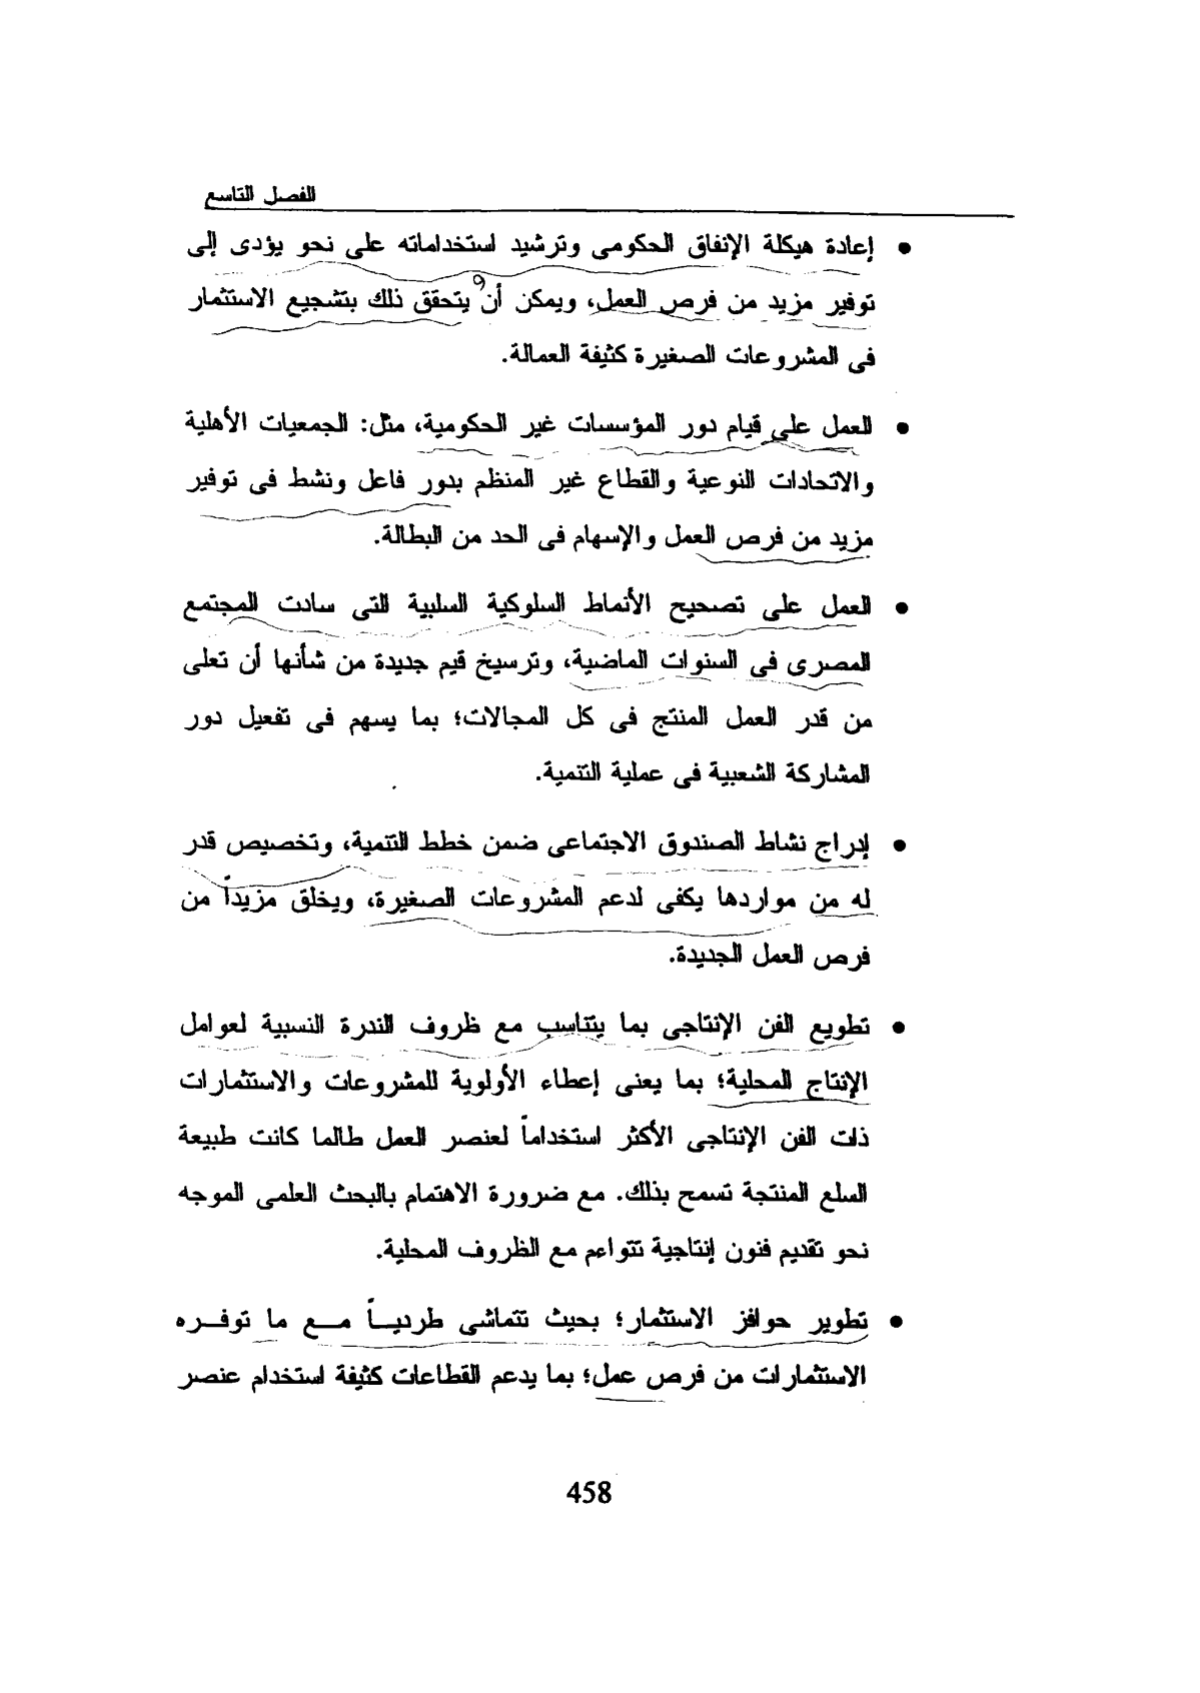 الفصل التاسع
• إعادة هيكلة الإنفاق الحكومى وترشيد استخداماته على نحو يؤدى إلى
توفير مزيد من فرص العمل، ويمكن أن يتحقق ذلك بتشجيع الاستثمار
فى المشروعات الصغيرة كثيفة العمالة.
• العمل على قيام دور المؤسسات غير الحكومية، مثل: الجمعيات الأهلية
والاتحادات النوعية والقطاع غير المنظم بدور فاعل ونشط فى توفير
مزيد من فرص العمل والإسهام فى الحد من البطالة.
• العمل على تصحيح الأنماط السلوكية السلبية التى سادت المجتمع
المصرى فى السنوات الماضية، وترسيخ قيم جديدة من شأنها أن تعلى
من قدر العمل المنتج فى كل المجالات؛ بما يسهم فى تفعيل دور
المشاركة الشعبية فى عملية التنمية.
• إدراج نشاط الصندوق الاجتماعى ضمن خطط التنمية، وتخصيص قدر
له من مواردها يكفى لدعم المشروعات الصغيرة، ويخلق مزيداً من
فرص العمل الجديدة.
• تطويع الفن الإنتاجى بما يتناسب مع ظروف الندرة النسبية لعوامل
الإنتاج المحلية؛ بما يعنى إعطاء الأولوية للمشروعات والاستثمارات
ذات الفن الإنتاجى الأكثر استخداماً لعنصر العمل طالما كانت طبيعة
السلع المنتجة تسمح بذلك. مع ضرورة الاهتمام بالبحث العلمى الموجه
نحو تقديم فنون إنتاجية تتواءم مع الظروف المحلية.
• تطوير حوافز الاستثمار؛ بحيث تتماشى طرديــاً مــع ما توفــره
الاستثمارات من فرص عمل؛ بما يدعم القطاعات كثيفة استخدام عنصر
458